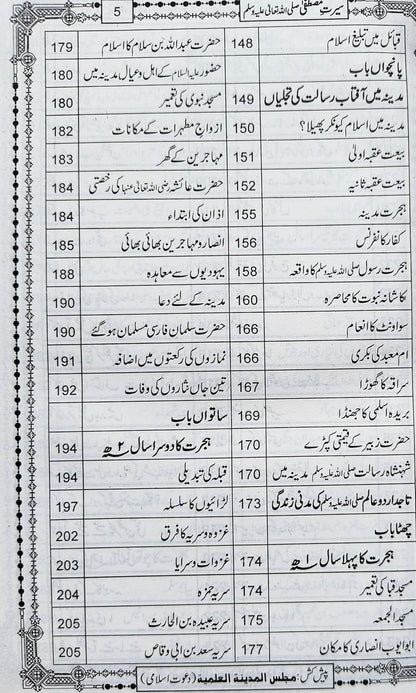 سیرتِ مصطفی صلی اللہ تعالیٰ علیہ وسلم
5
قبائل میں تبلیغ اسلام 148
پانچواں باب
مدینہ میں آفتاب رسالت کی تجلیاں 149
مدینہ میں اسلام کیونکر پھیلا؟ 150
بیعت عقبہ اولیٰ 151
بیعت عقبہ ثانیہ 152
ہجرت مدینہ 155
کفار کانفرنس 156
ہجرت رسول صلی اللہ علیہ وسلم کا واقعہ 158
کاشانہ نبوت کا محاصرہ 160
سو اونٹ کا انعام 166
ام معبد کی بکری 166
سراقہ کا گھوڑا 167
بریدہ اسلمی کا جھنڈا 169
حضرت زبیر کے قیمتی کپڑے 170
شہنشاہ رسالت صلی اللہ علیہ وسلم مدینہ میں 170
تاجدار دو عالم صلی اللہ علیہ وسلم کی مدنی زندگی 173
چھٹا باب
ہجرت کا پہلا سال ۱ ھ 174
مسجد قبا کی تعمیر 174
مسجد الجمعہ 175
ابو ایوب انصاری کا مکان 177
حضرت عبداللہ بن سلام کا اسلام 179
حضور علیہ السلام کے اہل و عیال مدینہ میں 180
مسجد نبوی کی تعمیر 180
ازواج مطہرات کے مکانات 182
مہاجرین کے گھر 183
حضرت عائشہ رضی اللہ تعالیٰ عنہا کی رخصتی 184
اذان کی ابتداء 184
انصار و مہاجرین بھائی بھائی 185
یہودیوں سے معاہدہ 188
مدینہ کے لئے دعا 190
حضرت سلمان فارسی مسلمان ہو گئے 190
نمازوں کی رکعتوں میں اضافہ 191
تین جاں نثاروں کی وفات 192
ساتواں باب
ہجرت کا دوسرا سال ۲ ھ 194
قبلہ کی تبدیلی 194
لڑائیوں کا سلسلہ 197
غزوہ و سریہ کا فرق 202
غزوات و سرایا 203
سریہ حمزہ 204
سریہ عبیدہ بن الحارث 205
سریہ سعد بن ابی وقاص 205
پیش کش: مجلس المدینة العلمیة (دعوت اسلامی)